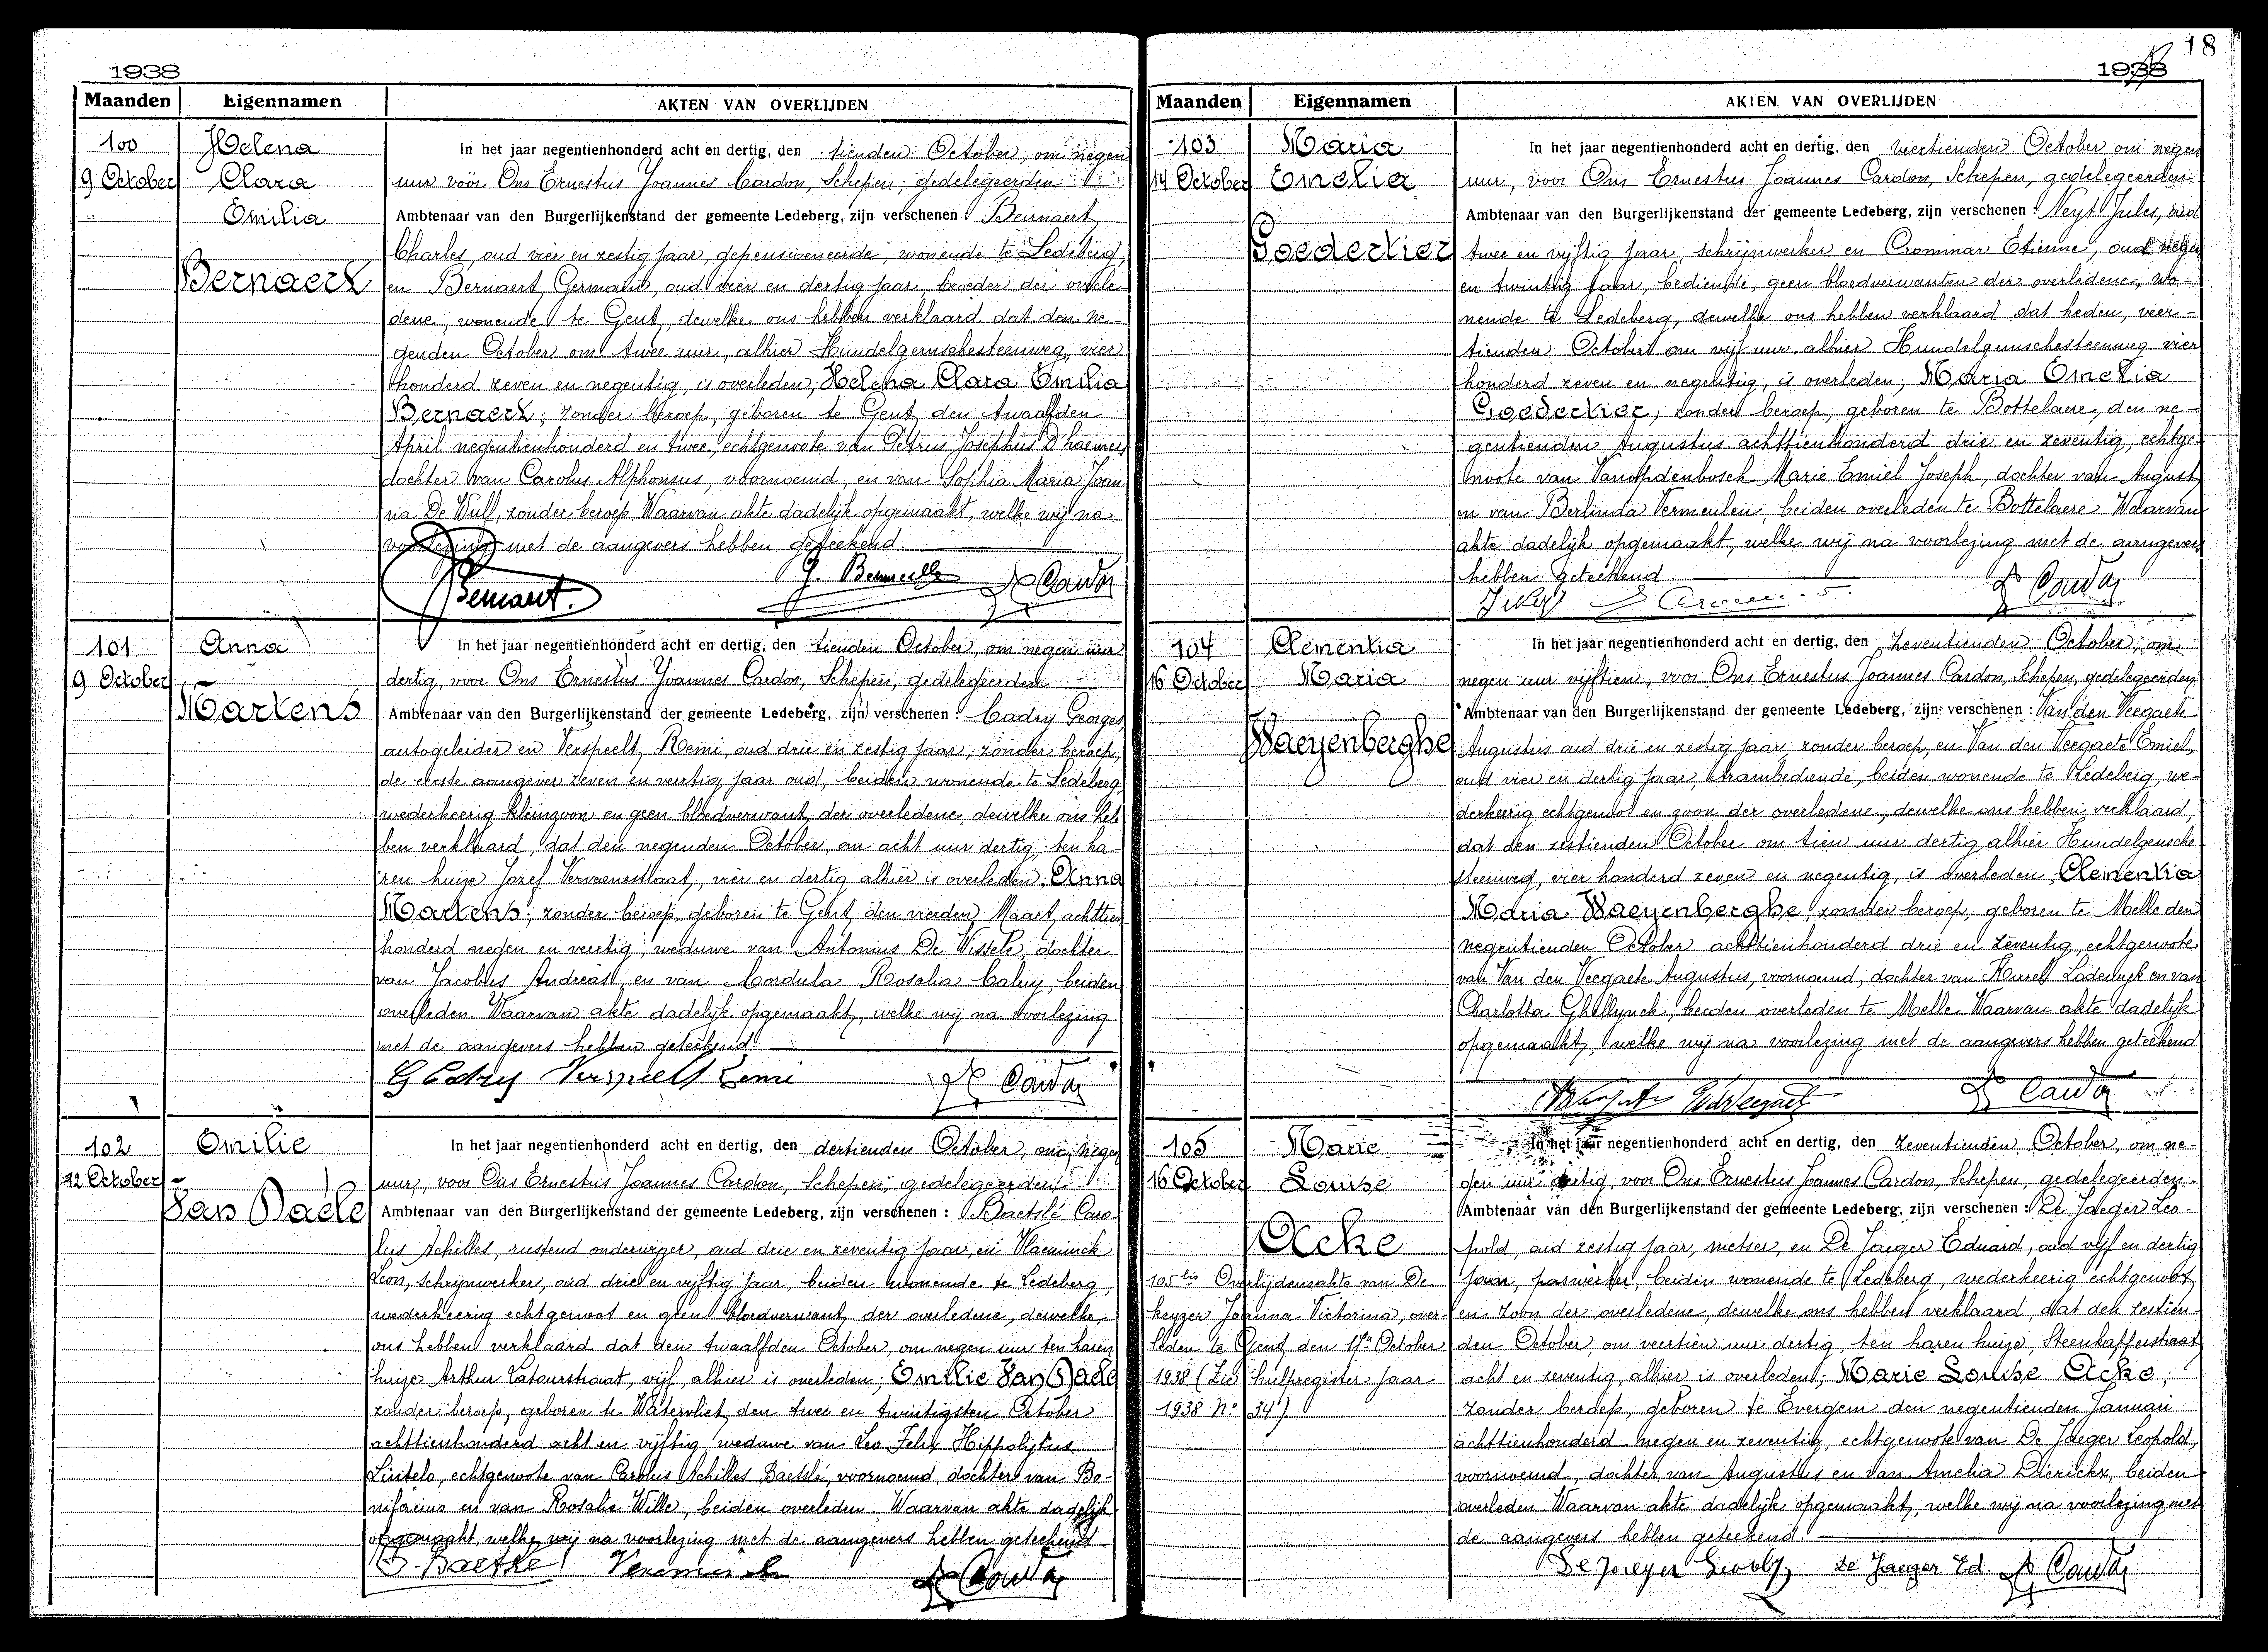 1938
Maanden Eigennamen AKTEN VAN OVERLIJDEN
100
9 October
Helena
Clara
Emilia
Bernaert
In het jaar negentienhonderd acht en dertig, den tienden October, om negen
uur vóór Ons Ernestus Joannes Cardon, Schepen, gedelegeerden
Ambtenaar van den Burgerlijkenstand der gemeente Ledeberg, zijn verschenen : Bernaert
Charles, oud vier en zestig jaar, gepensioneerde, wonende te Ledeberg,
en Bernaert Germain, oud vier en dertig jaar, broeder der overle-
dene, wonende te Gent, dewelke ons hebben verklaard dat den ne-
genden October om twee uur, alhier Hundelgemschesteenweg, vier
honderd zeven en negentig, is overleden; Helena Clara Emilia
Bernaert; zonder beroep, geboren te Gent, den twaalfden
April negentienhonderd en twee, echtgenoote van Petrus Josephus D'haemers
dochter van Carolus Alphonsus, voornoemd, en van Sophia Maria Joan
na De Wulf, zonder beroep. Waarvan akte dadelijk opgemaakt, welke wij na
voorlezing met de aangevers hebben geteekend.
Bernaert. G. Bernaert Cardon
101
9 October
Anna
Martens
In het jaar negentienhonderd acht en dertig, den tienden October, om negen uur
dertig, voor Ons Ernestus Joannes Cardon, Schepen, gedelegeerden
Ambtenaar van den Burgerlijkenstand der gemeente Ledeberg, zijn verschenen : Cadry Georges
autogeleider en Verspeelt Remi, oud drie en zestig jaar, zonder beroep,
de eerste aangever zeven en veertig jaar oud, beiden wonende te Ledeberg
wederkeerig kleinzoon en geen bloedverwant der overledene, dewelke ons heb
ben verklaard, dat den negenden October, om acht uur dertig, ten ha-
ren huize Jozef Vervoenestraat, vier en dertig alhier is overleden; Anna
Martens; zonder beroep, geboren te Gent, den vierden Maart achttien
honderd negen en veertig, weduwe van Antonius De Wissele, dochter
van Jacobus Andreas en van Cordula Rosalia Caluy, beiden
overleden. Waarvan akte dadelijk opgemaakt, welke wij na voorlezing
met de aangevers hebben geteekend.
G Cadry Verspeelt Remi Cardon
102
12 October
Emilie
Van Daele
In het jaar negentienhonderd acht en dertig, den dertienden October, om negen
uur, voor Ons Ernestus Joannes Cardon, Schepen, gedelegeerden
Ambtenaar van den Burgerlijkenstand der gemeente Ledeberg, zijn verschenen : Baetslé Caro
lus Achilles, rustend onderwijzer, oud drie en zeventig jaar, en Vlaeminck
Leon, schrijnwerker, oud drie en vijftig jaar, beiden wonende te Ledeberg,
wederkeerig echtgenoot en geen bloedverwant der overledene, dewelke
ons hebben verklaard dat den twaalfden October, om negen uur ten haren
huize Arthur Latourstraat, vijf, alhier is overleden; Emilie Van Daele
zonder beroep, geboren te Watervliet den twee en twintigsten October
achttienhonderd acht en vijftig, weduwe van Leo Felix Hippolijtus
Lintelo, echtgenoote van Carolus Achilles Baetslé, voornoemd, dochter van Bo-
nifacius en van Rosalie Wille, beiden overleden. Waarvan akte dadelijk
opgemaakt, welke wij na voorlezing met de aangevers hebben geteekend
Cardon
18
1938
Maanden Eigennamen AKTEN VAN OVERLIJDEN
103
14 October
Maria
Emelia
Goedertier
In het jaar negentienhonderd acht en dertig, den veertienden October om negen
uur, voor Ons Ernestus Joannes Cardon, Schepen, gedelegeerden
Ambtenaar van den Burgerlijkenstand der gemeente Ledeberg, zijn verschenen : Neyt Jules, oud
twee en vijftig jaar, schrijnwerker en Crommar Etienne, oud negen
en twintig jaar, bediende, geen bloedverwanten der overledene, wo-
nende te Ledeberg, dewelke ons hebben verklaard dat heden, veer-
tienden October om vijf uur alhier Hundelgemschesteenweg vier
honderd zeven en negentig, is overleden; Maria Emelia
Goedertier, zonder beroep, geboren te Bottelaere, den ne-
gentienden Augustus achttienhonderd drie en zeventig, echtge-
noote van Vanopdenbosch Marie Emiel Joseph, dochter van August
en van Berlinda Vermeulen, beiden overleden te Bottelaere. Waarvan
akte dadelijk opgemaakt, welke wij na voorlezing met de aangevers
hebben geteekend.
Cardon
104
16 October
Clementia
Maria
Waeyenberghe
In het jaar negentienhonderd acht en dertig, den zeventienden October, om
negen uur vijftien, voor Ons Ernestus Joannes Cardon, Schepen, gedelegeerden
Ambtenaar van den Burgerlijkenstand der gemeente Ledeberg, zijn verschenen : Van den Veegaete
Augustus oud drie en zestig jaar zonder beroep, en Van den Veegaete Emiel,
oud vier en dertig jaar, trambediende, beiden wonende te Ledeberg, we-
derkeerig echtgenoot en zoon der overledene, dewelke ons hebben verklaard,
dat den zestienden October om tien uur dertig, alhier Hundelgemsche
steenweg, vier honderd zeven en negentig, is overleden; Clementia
Maria Waeyenberghe, zonder beroep, geboren te Melle den
negentienden October achttienhonderd drie en zeventig, echtgenoote
van Van den Veegaete Augustus, voornoemd, dochter van Karel Lodewijk en van
Charlotta Ghellynck, beiden overleden te Melle. Waarvan akte dadelijk
opgemaakt, welke wij na voorlezing met de aangevers hebben geteekend
Cardon
105
16 October
Marie
Louise
Acke
105 bis Overlijdensakte van De
keyzer Joanna Victorina, over-
leden te Gent den 17en October
1938 (Zie hulpregister jaar
1938 N° 34)
In het jaar negentienhonderd acht en dertig, den zeventienden October, om ne-
gen uur dertig, voor Ons Ernestus Joannes Cardon, Schepen, gedelegeerden
Ambtenaar van den Burgerlijkenstand der gemeente Ledeberg, zijn verschenen : De Jaeger Leo-
pold, oud zestig jaar, metser, en De Jaeger Eduard, oud vijf en dertig
jaar, paswerker, beiden wonende te Ledeberg, wederkeerig echtgenoot
en zoon der overledene, dewelke ons hebben verklaard, dat den zestien-
den October, om veertien uur dertig, ten haren huize, Steenkafferstraat
acht en zeventig, alhier is overleden; Marie Louise Acke;
zonder beroep, geboren te Evergem den negentienden Januari
achttienhonderd negen en zeventig, echtgenoote van De Jaeger Leopold,
voornoemd, dochter van Augustus en van Amelia Dierickx, beiden
overleden. Waarvan akte dadelijk opgemaakt, welke wij na voorlezing met
de aangevers hebben geteekend.
De Jaeger Leopold De Jaeger Ed. Cardon